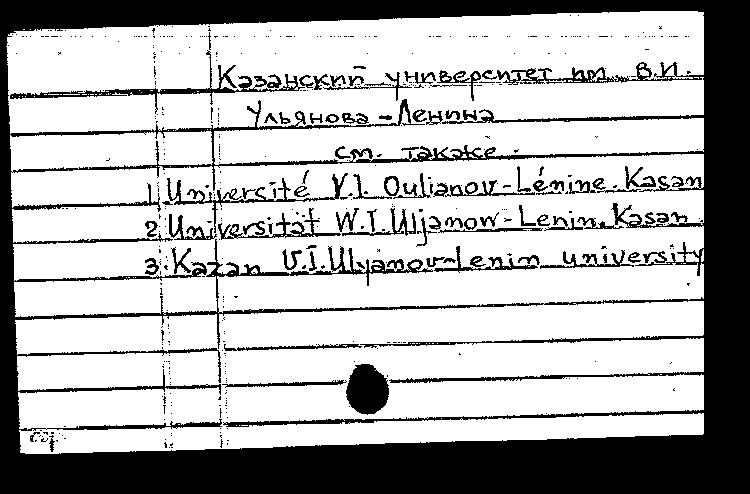 Казанский университет им. В.И.
Ульянова-Ленина
см. также.
1. Université V.I. Oulianov-Lénine. Kasan
2. Universität W.I. Uljanow-Lenin. Kasan.
3. Kazan V.I. Ulyanov-Lenin university